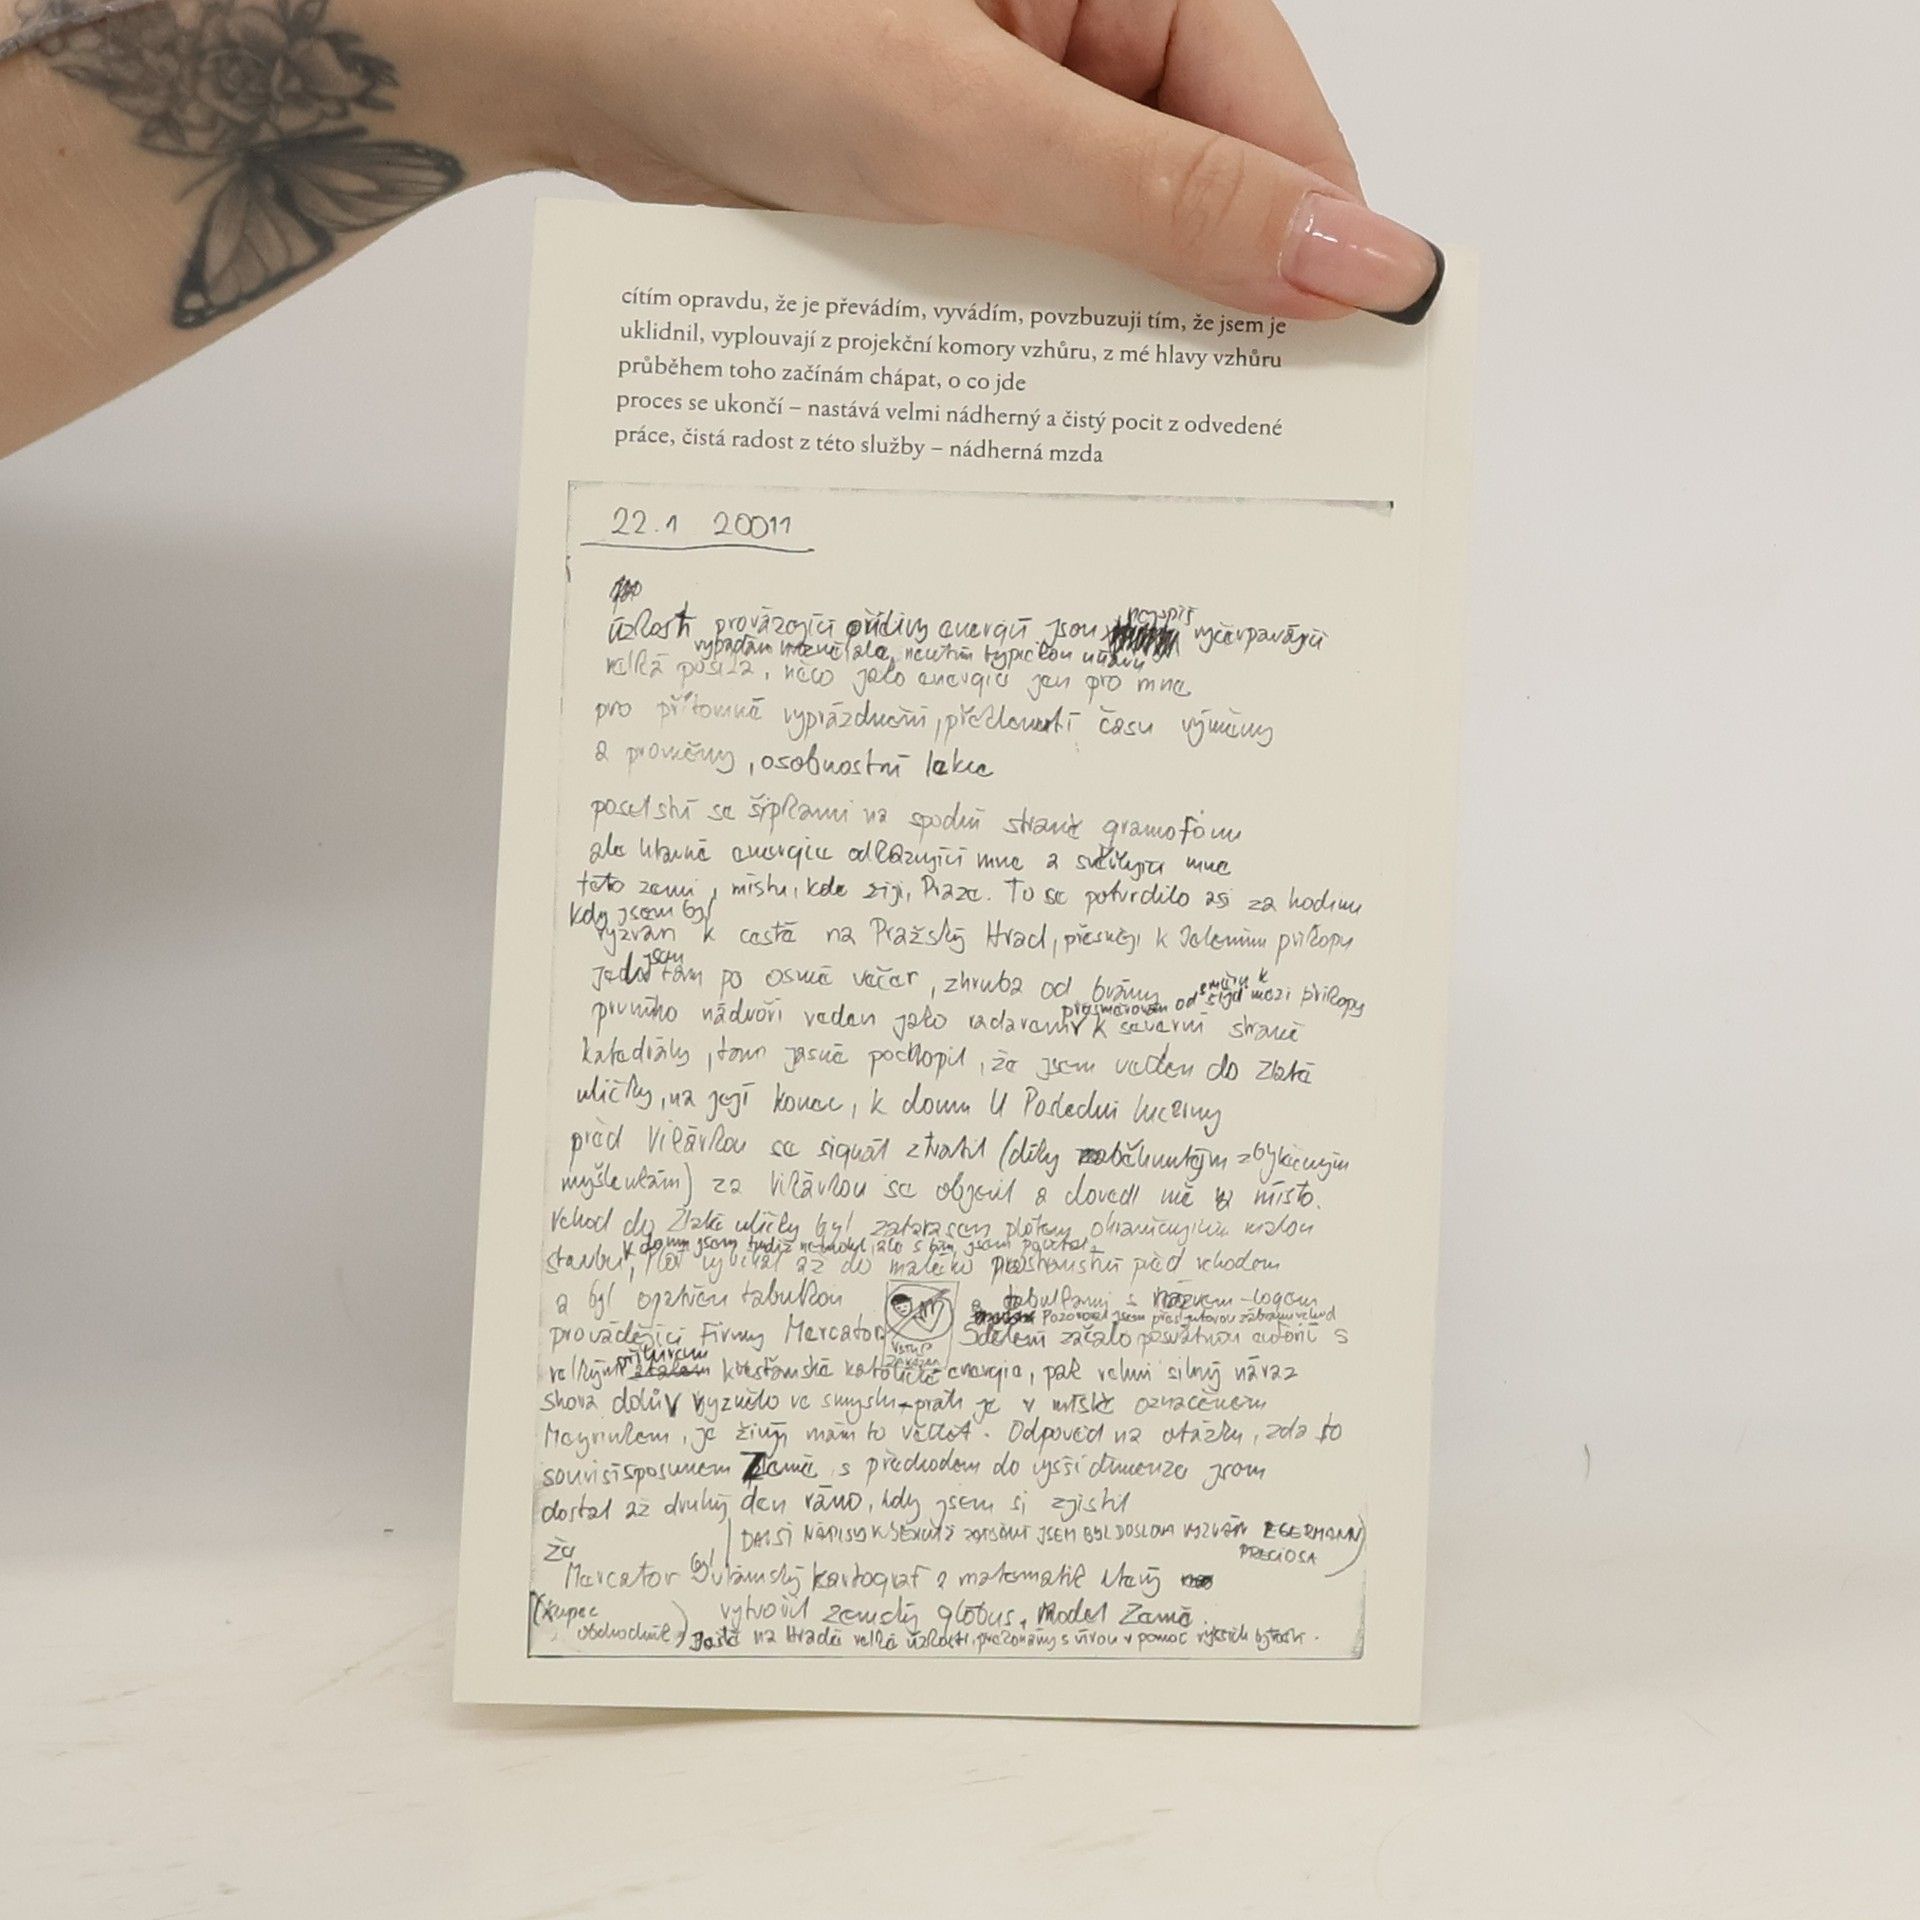 cítím opravdu, že je převádím, vyvádím, povzbuzuji tím, že jsem je
uklidnil, vyplouvají z projekční komory vzhůru, z mé hlavy vzhůru
průběhem toho začínám chápat, o co jde
proces se ukončí – nastává velmi nádherný a čistý pocit z odvedené
práce, čistá radost z této služby – nádherná mzda
22.1 20011
úzkosti provázející přílivy energií jsou nejspíš vyčerpávající
vypadám ale, necítím typickou únavu
velká posila, něco jako energie jen pro mne
pro přítomné vyprázdnění, překlenutí času výměny
a proměny, osobnostní lekce
poselství se šipkami na spodní straně gramofonu
ale hlavně energie odkazující mne a mne
této zemi, místu, kde žiji, Praze. To se potvrdilo asi za hodinu
kdy jsem byl
vyzván k cestě na Pražský Hrad, přesněji k Jelením příkopu
jsem
tam po osmé večer, zhruba od brány směru k mezi příkopy
přesměrován od
prvního nádvoří veden jako radarem k severní straně
katedrály, tam jasně pochopil, že jsem veden do Zlaté
uličky, na její konec, k domu U Poslední lucerny
před Vikárkou se signál ztratil (díky zbytečným
myšlenkám) za Vikárkou se objevil a dovedl mě na místo.
Vchod do Zlaté uličky byl zatarasen plotem ohraničujícím malou
k domu jsem tudíž nemohl, ale s ním jsem
stavbu, až do malého prostranství před vchodem
a byl opatřen tabulkou a tabulkami s názvem-logem
Pozoroval jsem přes
provádějící firmy Mercator Sdělení začalo posvátnou s
VSTUP
ZAKÁZÁN
velkým křesťanské katolické energie, pak velmi silný náraz
shora dolů vyznělo ve smyslu - práh je v místě označeném
Meyrinkem, je živý, mám to vědět. Odpověď na otázku, zda to
souvisí s posunem Země s přechodem do vyšší dimenze jsem
dostal až druhý den ráno, kdy jsem si zjistil
DALŠÍ NÁPISY K JSEM BYL DOSLOVA VYZVÁN EGERMANN
PRECIOSA
že
Mercator byl vlámský kartograf a matematik který
(kupec
obchodník)
vytvořil zemský glóbus, model Země.
Ještě na Hradě velké úzkosti, překonány s vírou v pomoc vyšších bytostí.